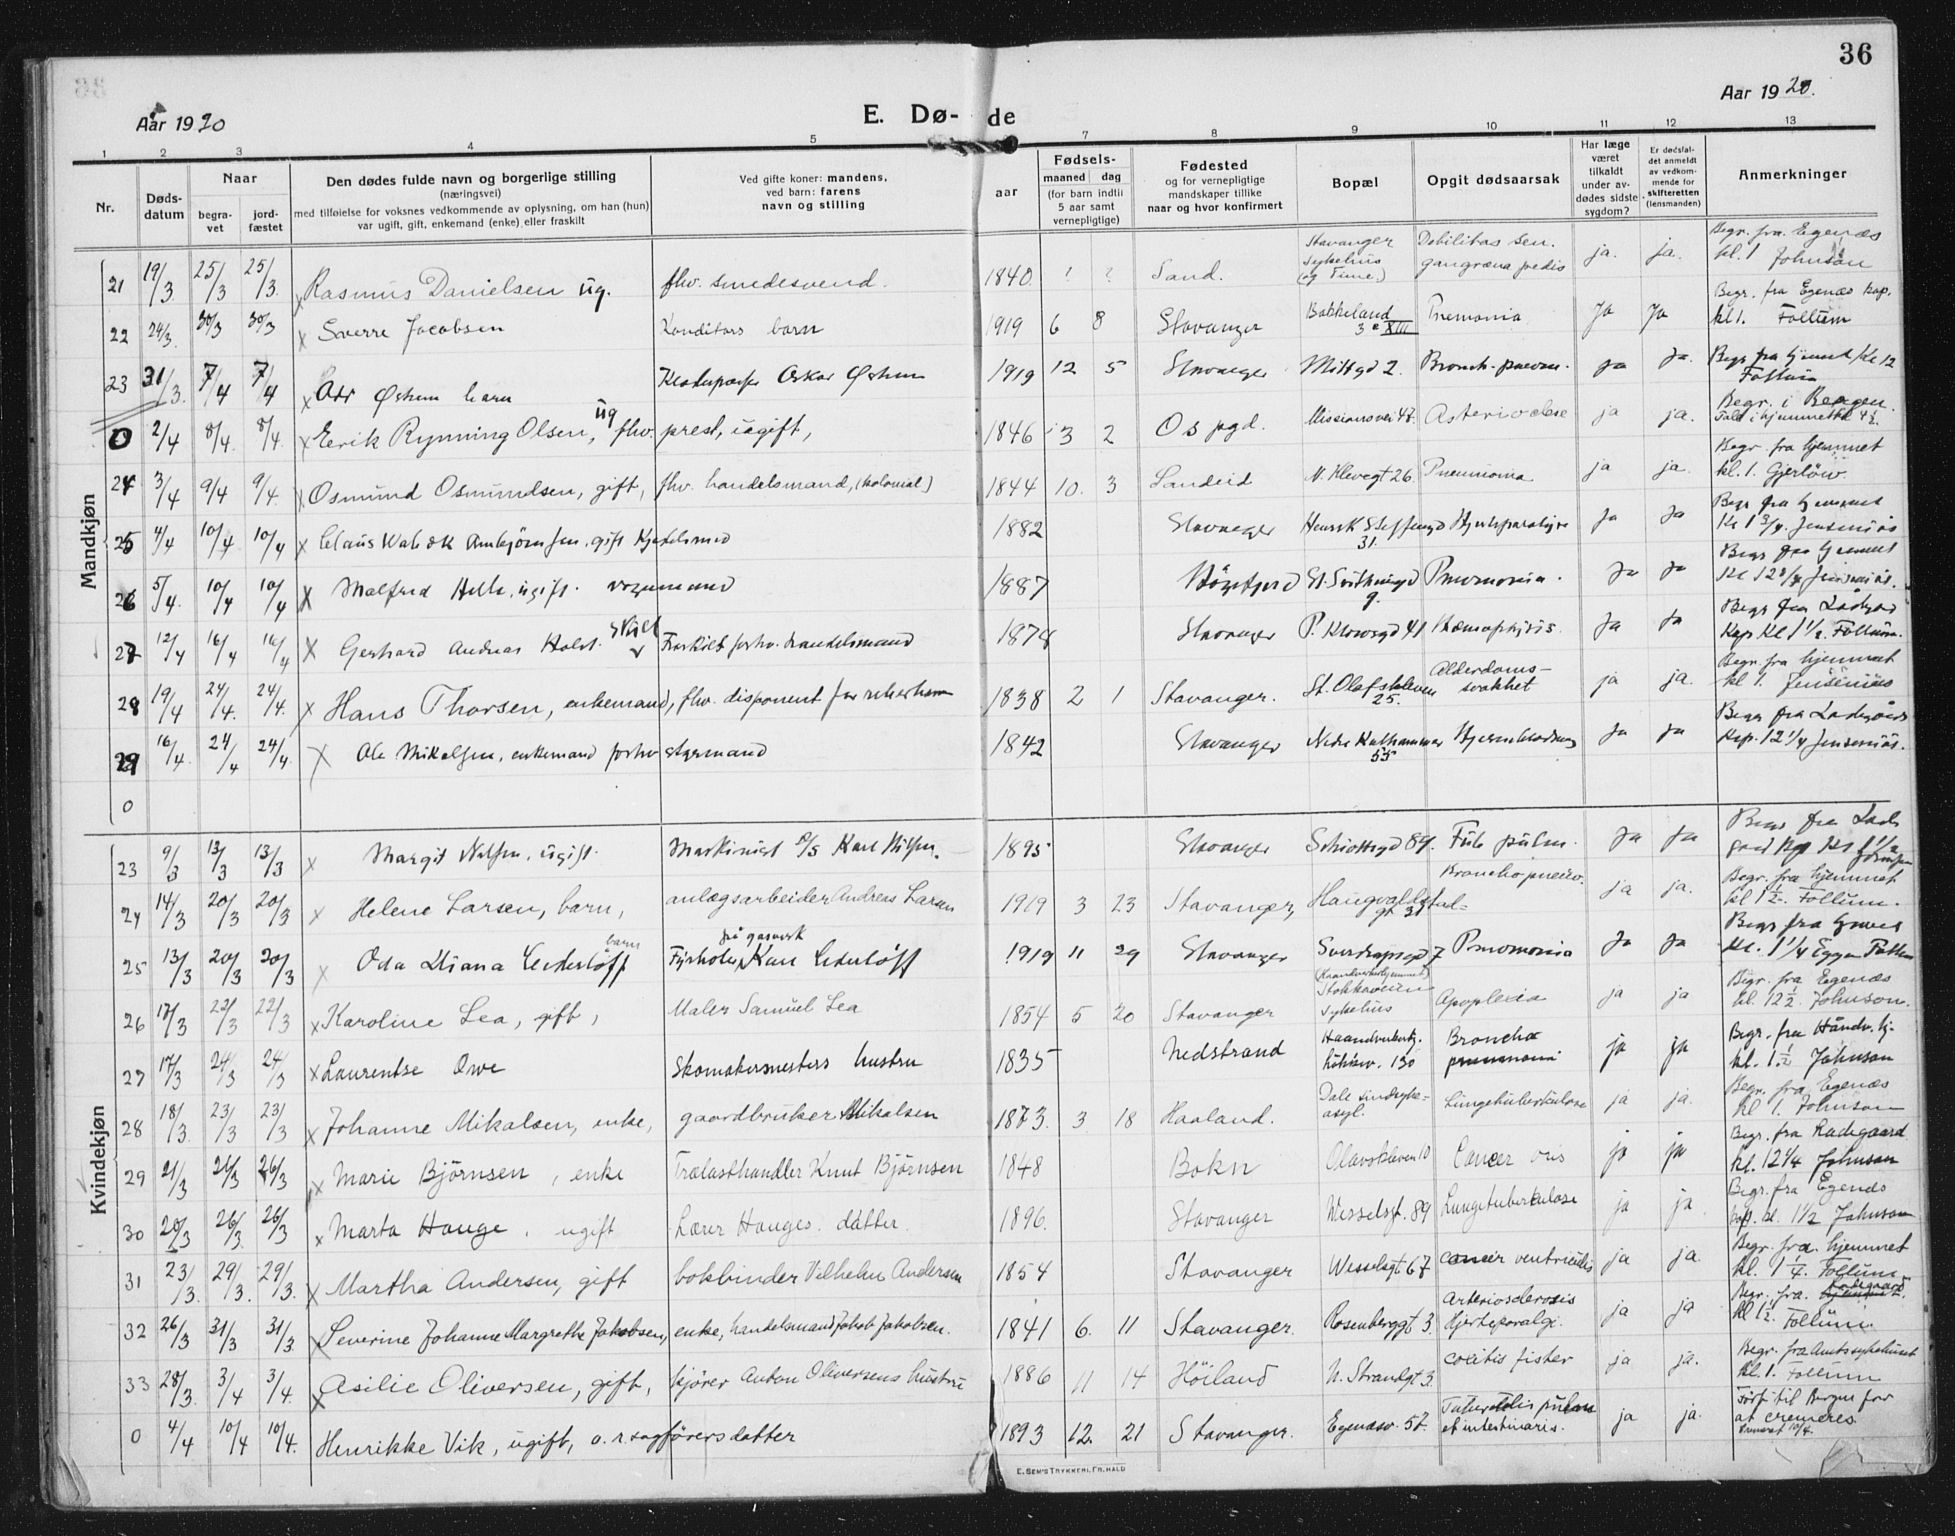 36
Aar 1920
Aar 1920.
E. Dø- de
1 2 3 4 5 7 8 9 10 11 12 13
Nr.
Døds-
datum
Naar
begra-
vet
jord-
fæstet
Den dødes fulde navn og borgerlige stilling
(næringsvei)
med tilføielse for voksnes vedkommende av oplysning, om han (hun)
var ugift, gift, enkemand (enke) eller fraskilt
Ved gifte koner: mandens,
ved barn: farens
navn og stilling
aar
Fødsels-
maaned dag
(for barn indtil
5 aar samt
vernepligtige)
Fødested
og for vernepligtige
mandskaper tillike
naar og hvor konfirmert
Bopæl
Opgit dødsaarsak
Har læge
været
tilkaldt
under av-
dødes sidste
sygdom?
Er dødsfal-
det anmeldt
av vedkom-
mende for
skifteretten
(lensmanden)
Anmerkninger
Mandkjøn
21 19/3 25/3 25/3. x Rasmus Danielsen ug. fhv. smedesvend. 1840 ? ? Sand. Stavanger Sykehus (og Time.) Debilitas sen. gangræna pedis ja. ja. Begr. fra Egenæs kl. 1 Johnson
22 24/3. 30/3 30/3 x Sverre Jacobsen Konditors barn 1919 6 8 Stavanger Bakkeland 3 e XIII Pnemonia Ja Ja Begr. fra Egenæs kap. kl 1. Follum
23 31/3. 7/4 7/4 x Odr Østhem barn Oskar Østhem 1919 12 5 Stavanger Miltzgd 2. Bronch-pneum. Ja Ja. Begr fra hjemmet Kl 12 Follum
0 2/4 8/4. 8/4. x Eerik Rynning Olsen, ug fhv. prest, ugift, 1846 3 2 Os pgd. Missionsvei 48. Arteriosclose ja ja. Begr. i Bergen.
24 3/4 9/4 9/4. x Osmund Osmundsen, gift, fhv. handelsmand, (kolonial) 1844 10. 3 Sandeid N. Klevegt 26 Pneumonia ja ja. Begr fra hjemmet kl. 1. Gjerløw.
25 4/4 10/4. 10/4 x Claus Walak Ambjørnsen. gift 1882 Stavanger Henrik Steffensgd 31. Hjerteparalyse Ja Ja Begr fra hjemmet Kl 1 3/4. Jensenius
26 5/4. 10/4 10/4 x Malfred Helle. ugift. vognmand 1887 Høgsfjord St. Svithunsgd 9. Pneumonia. Ja Ja Begr fra hjemmet Kl 12 3/4 Jensenius.
27 12/4 16/4 16/4 x Gerhard Andreas Holst. skilt Fraskilt forhv. handelsmand 1878 Stavanger P. Klowsgd 41 Hæmophtysis. Ja Ja Begr fra Ladegaard Kap Kl 1 1/2. Follum.
28 19/4 24/4. 24/4. x Hans Thorsen, enkemand, fhv. disponent 1838 2 1 Stavanger. St. Olafskleven 25. Alderdoms- svakhet ja ja. Begr. fra hjemmet kl 1. Jensenius
29 16/4. 24/4 24/4. x Ole Mikalsen, enkemand forhv styrmand 1842 Stavanger Nedre Kalhammar 55 Hjerneblødning Ja Ja Begr fra Ladegaards Kap. 12 1/4 Jensenius.
0
Kvindekjøn
23 9/3 13/3 13/3 x Margit Nilsen, ugift. Maskinist Karl Nilsen. 1895 Stavanger Schiøttsgd 89. Tub pulm. Ja Ja Begr fra Lade gaard Kap Kl 1 1/2 Johnsen
24 14/3 20/3 20/3 x Helene Larsen, barn, anlægsarbeider Andreas Larsen 1919 3 23 Stavanger, Haugvaldstad- gt 31 Broncho pneum. ja ja. Begr. fra hjemmet kl 1 1/2. Follum.
25 13/3 20/3 20/3 x Oda Diana Cederløff barn Fyrbøter på gasverk Karl Cederløff 1919 11 29 Stavanger Sverdrupsgd 7 Pneumonia Ja Ja Begr fra hjemmet Kl. 1 1/4 Follum
26 17/3 22/3 22/3 x Karoline Lea, gift, Maler Samuel Lea 1854 5 20 Stavanger Stokkaveien Sykehus Apoplexia ja ja Begr. fra Egenæs kl. 12 1/2. Johnson.
27 17/3 24/3 24/3 x Laurentse Owe Skomakermesters hustru 1835 Nedstrand Haandverkerhj. 130 Broncho pneumonia ja ja Begr. fra Håndv. hj- kl. 1 1/2 Johnson
28 18/3. 23/3 23/3 x Johanne Mikalsen, enke, gaardbruker Mikalsen 1873. 3 18 Haaland. Dale sindsyke- asyl. Lungetuberkulose ja ja. Begr. fra Egenæs kl 1. Johnson
29 21/3 26/3 26/3 x Marie Bjørnsen, enke Trælasthandler Knut Bjørnsen 1848 Bokn Olavskleven 10 Cancer ovis ja ja Begr. fra Ladegaard kl. 12 1/4 Johnson
30 20/3 26/3. 26/3 x Marta Hauge. ugift Lærer Hauges. datter. 1896. Stavanger Wesselsgt. 89 Lungetuberkulose ja ja. Begr. fra Egenæs kap. kl. 1 1/2 Johnson
31 23/3. 29/3. 29/3. x Martha Andersen, gift bokbinder Vilhelm Andersen 1854 Stavanger Wesselsgt 67 cancer ventriculis ja ja. Begr. fra. hjemmet kl. 1 1/4. Follum.
32 26/3 31/3 31/3. x Severine Johanne Margrethe Jakobsen, enke, handelsmand Jakob Jakobsen. 1841 6. 11 Stavanger. Rosenberggt 3. Arteriosclerosis Hjerteparalyi. ja ja Begr. fra. Ladegaard kl 1 1/2. Follum.
33 28/3 3/4 3/4. x Asilie Oliversen, gift, kjører Anton Oliversens hustru 1886 11 14 Höiland N. Strandgt 3. colitis fister ja ja. Begr. fra Amtssykehuset Kl. 1. Follum
0 4/4 10/4 10/4. Henrikke Vik, ugift, o.r.sagførers datter 1893 12. 21 Stavanger. Egenæsv. 57. et intestinaris. ja ja. Ført til Bergen for at cremeres.
E. SEM'S TRYKKERI, FR.HALD